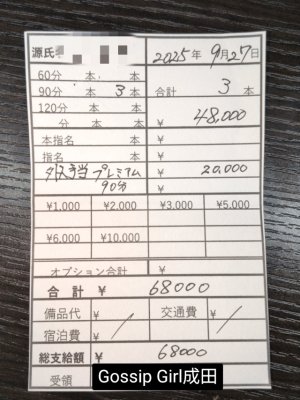 源氏
2025年 9月27日
60分 本 本
90分 本 3本 合計 3本
120分 本 本
分 本 本 ¥ 48,000
本指名 ¥
指名 ¥
プレミアム ¥ 20,000
90分
¥1,000 ¥2,000 ¥3,000 ¥5,000
¥6,000 ¥10,000
オプション合計 ¥
合計 ¥ 68000
備品代 ¥ 交通費 ¥
宿泊費 ¥
総支給額 ¥ 68000
受領
Gossip Girl成田